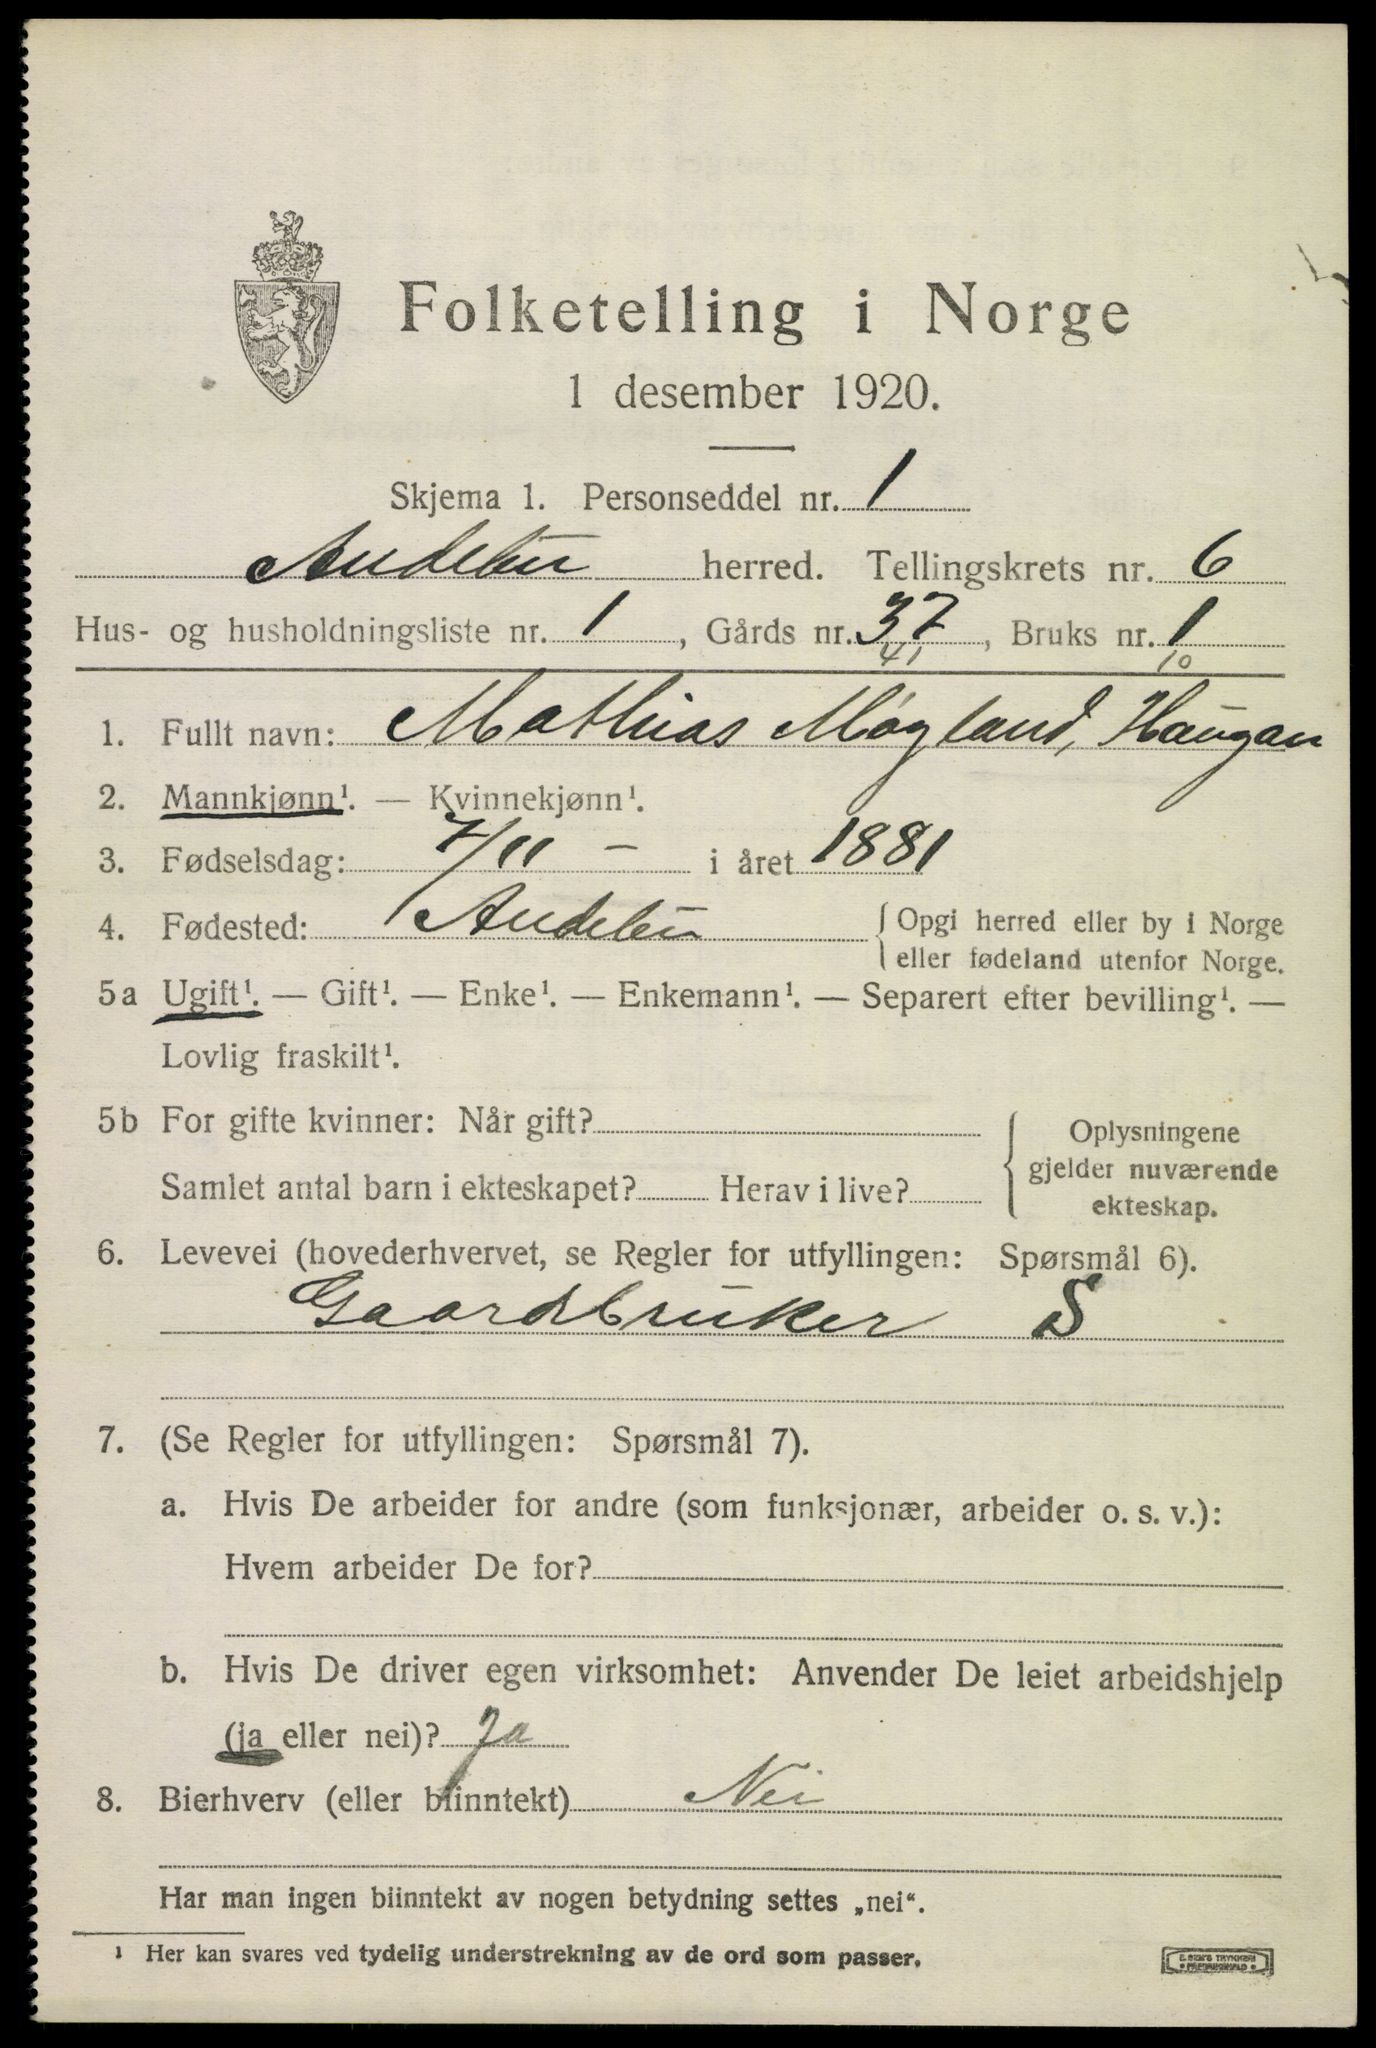 Folketelling i Norge
1 desember 1920.
Skjema 1. Personseddel nr. 1
Andebu herred. Tellingskrets nr. 6
Hus- og husholdningsliste nr. 1, Gårds nr. 37, Bruks nr. 1
41 10
1. Fullt navn: Mathias Møyland, Haugan
2. Mannkjønn¹. — Kvinnekjønn¹.
3. Fødselsdag: 7/11 – i året 1881
4. Fødested: Andebu { Opgi herred eller by i Norge
eller fødeland utenfor Norge.
5a Ugift¹. — Gift¹. — Enke¹. — Enkemann¹. — Separert efter bevilling¹. —
Lovlig fraskilt¹.
5b For gifte kvinner: Når gift? { Oplysningene
gjelder nuværende
Samlet antal barn i ekteskapet? Herav i live? ekteskap.
6. Levevei (hovederhvervet, se Regler for utfyllingen: Spørsmål 6).
Gaardbruker S
7. (Se Regler for utfyllingen: Spørsmål 7).
a. Hvis De arbeider for andre (som funksjonær, arbeider o. s. v.):
Hvem arbeider De for?
b. Hvis De driver egen virksomhet: Anvender De leiet arbeidshjelp
(ja eller nei)? Ja
8. Bierhverv (eller biinntekt) Nei
Har man ingen biinntekt av nogen betydning settes „nei“.
¹ Her kan svares ved tydelig understrekning av de ord som passer.